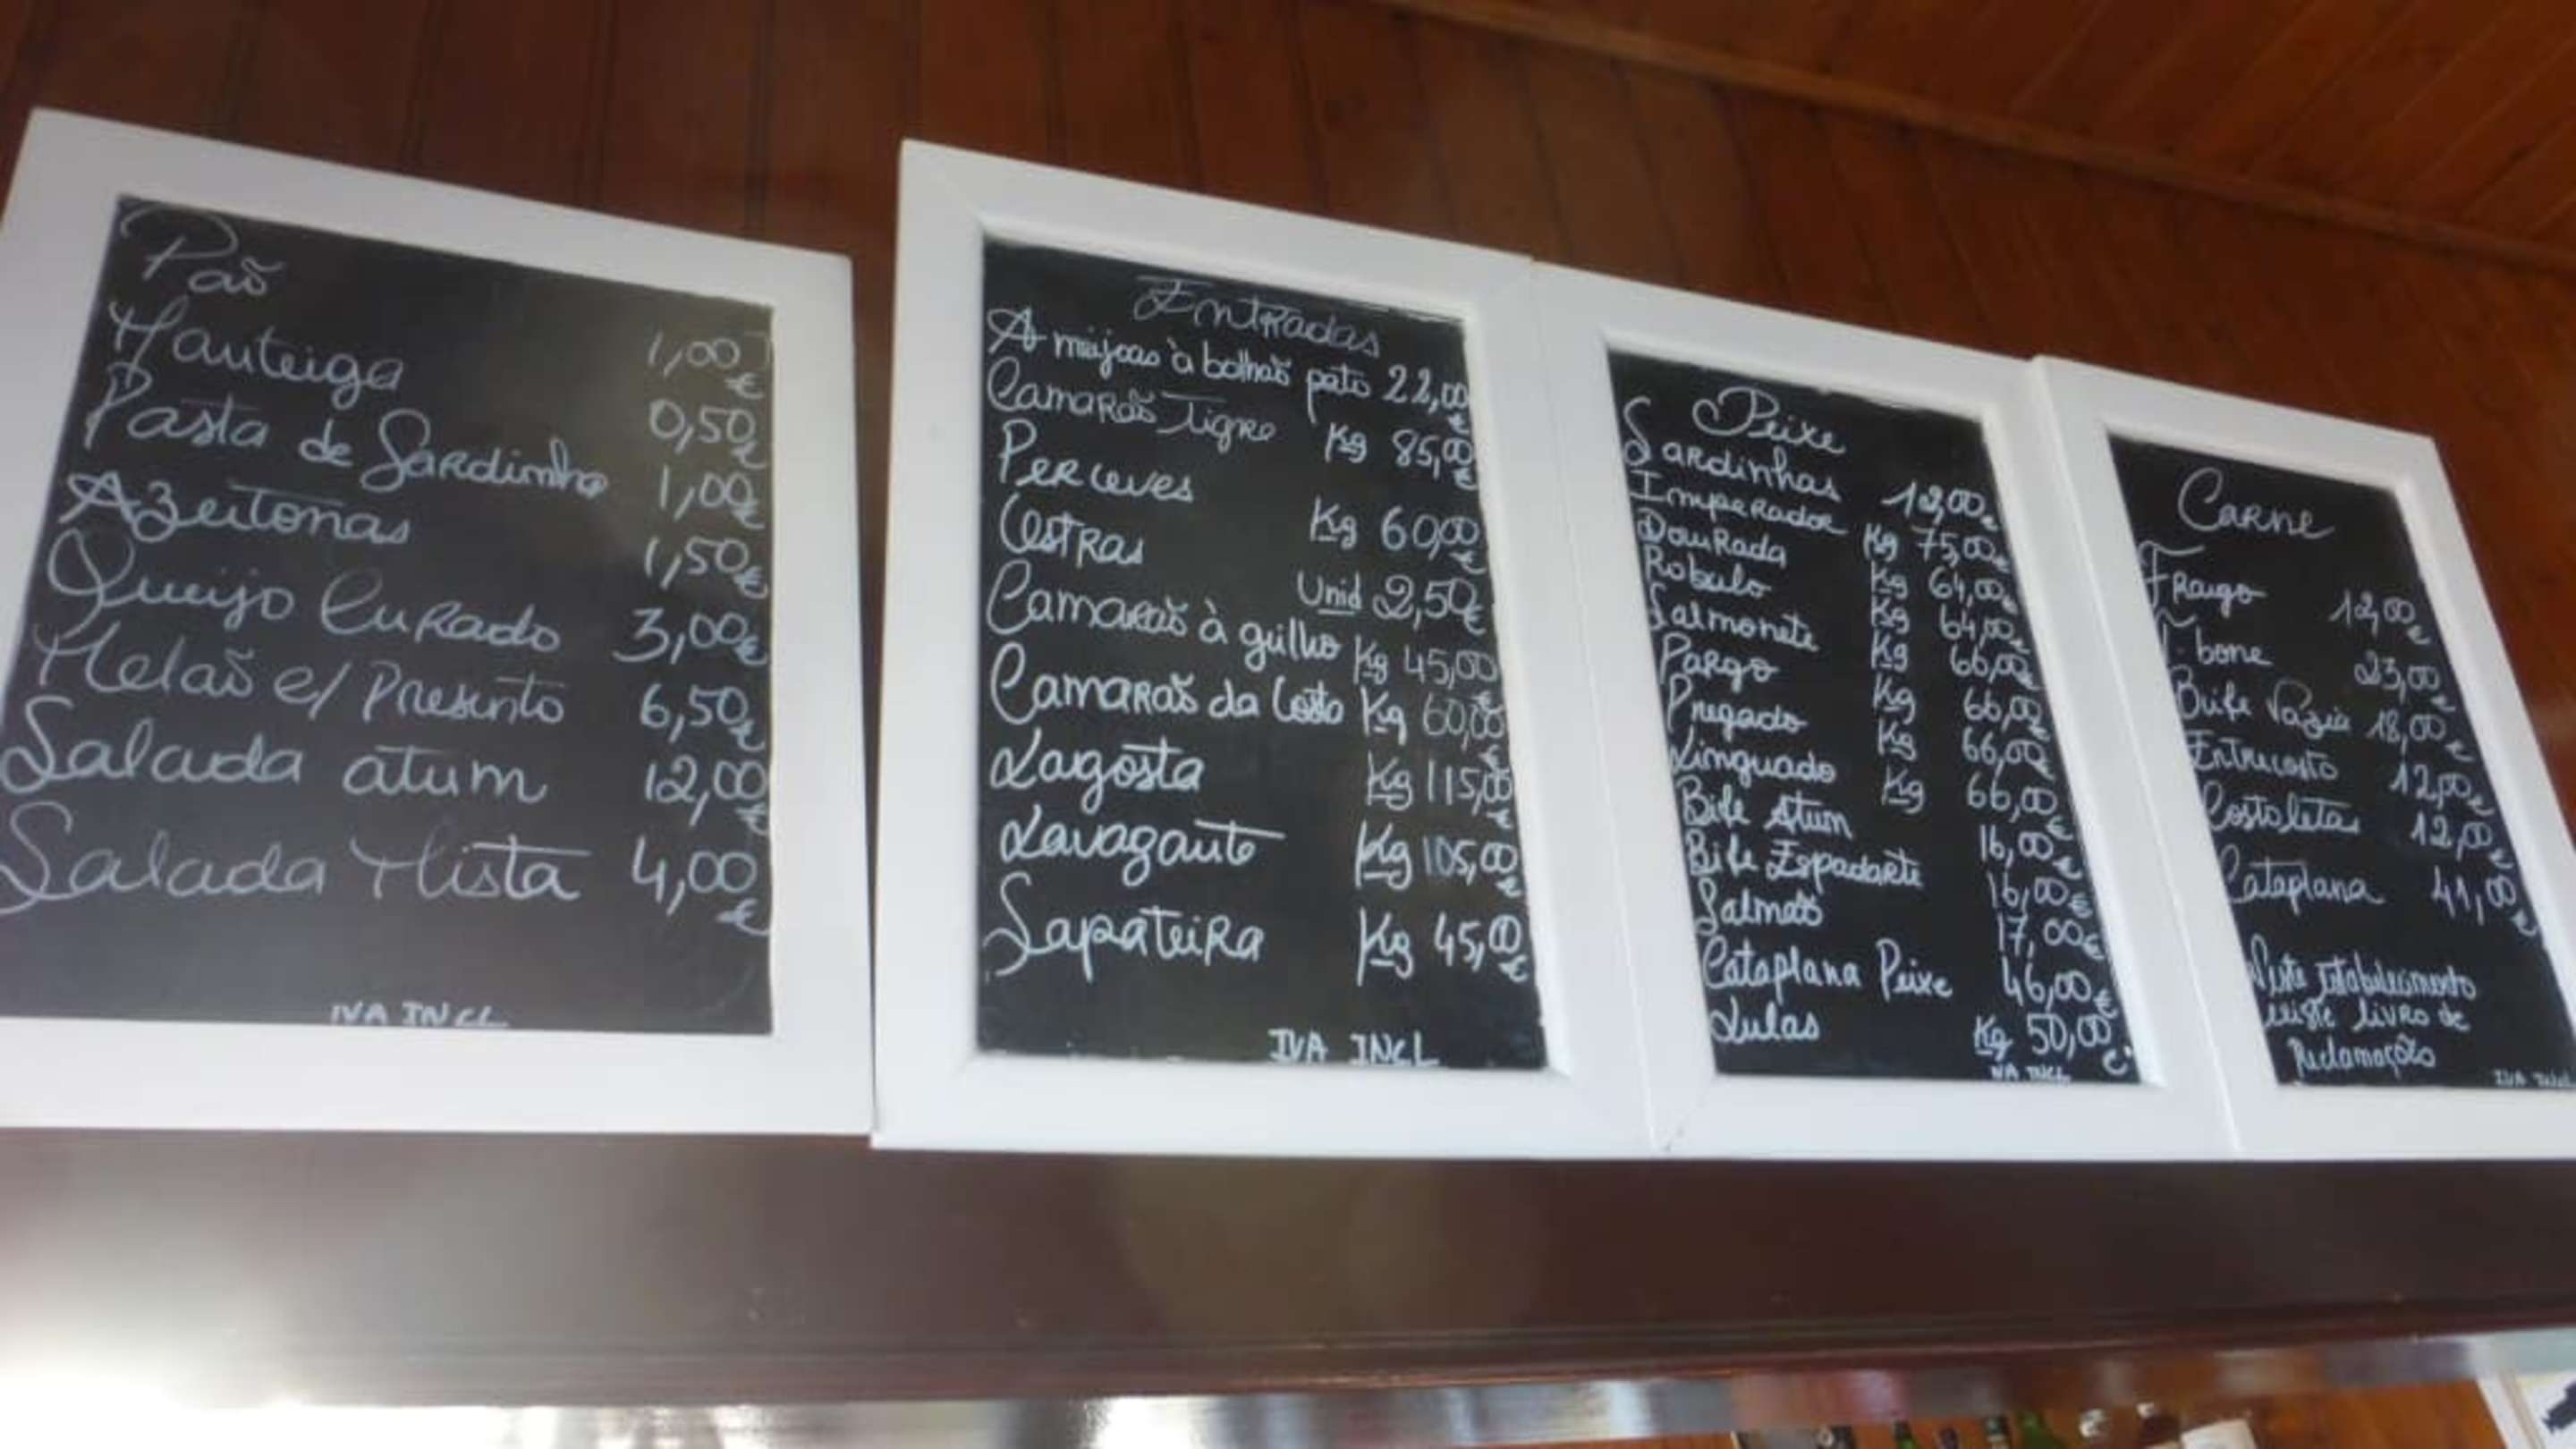 Paõ 1,00€
Manteiga 0,50€
Pasta de Sardinha 1,00€
Azeitonas 1,50€
Queijo Curado 3,00€
Melaõ c/ Presunto 6,50€
Salada atum 12,00€
Salada Mista 4,00€
IVA INCL.
Entradas
Amijoas à bolhaõ pato 22,00€
Camaraõ Tigre Kg 85,00€
Perceves Kg 60,00€
Ostras Unid 2,50€
Camaraõ à guilho Kg 45,00€
Camaraõ da Costa Kg 60,00€
Lagosta Kg 115,00€
Lavagante Kg 105,00€
Sapateira Kg 45,00€
IVA INCL
Peixe
Sardinhas 12,00€
Imperador Kg 75,00€
Dourada Kg 64,00€
Robalo Kg 64,00€
Salmonete Kg 66,00€
Pargo Kg 66,00€
Pregado Kg 66,00€
Linguado Kg 66,00€
Bife Atum 16,00€
Bife Espadarte 16,00€
Salmaõ 17,00€
Cataplana Peixe 46,00€
Lulas Kg 50,00€
IVA INCL
Carne
Frango 12,00€
T-bone 23,00€
Bife Vazia 18,00€
Entrecosto 12,00€
Costoletas 12,00€
Cataplana 41,00€
Neste estabelecimento
existe livro de
Reclamações
IVA INCL